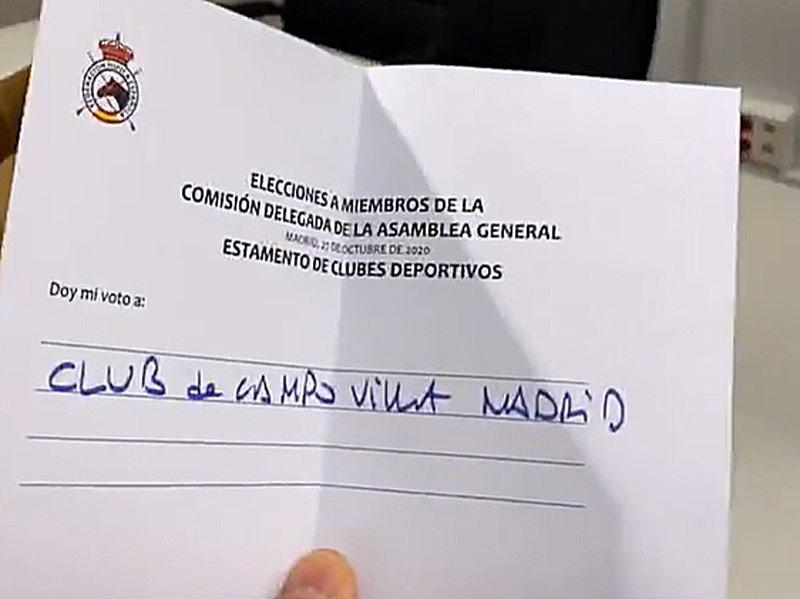 FEDERACIÓN HÍPICA ESPAÑOLA
ELECCIONES A MIEMBROS DE LA
COMISIÓN DELEGADA DE LA ASAMBLEA GENERAL
MADRID, 27 DE OCTUBRE DE 2020
ESTAMENTO DE CLUBES DEPORTIVOS
Doy mi voto a:
CLUB de CAMPO VillA MADRiD